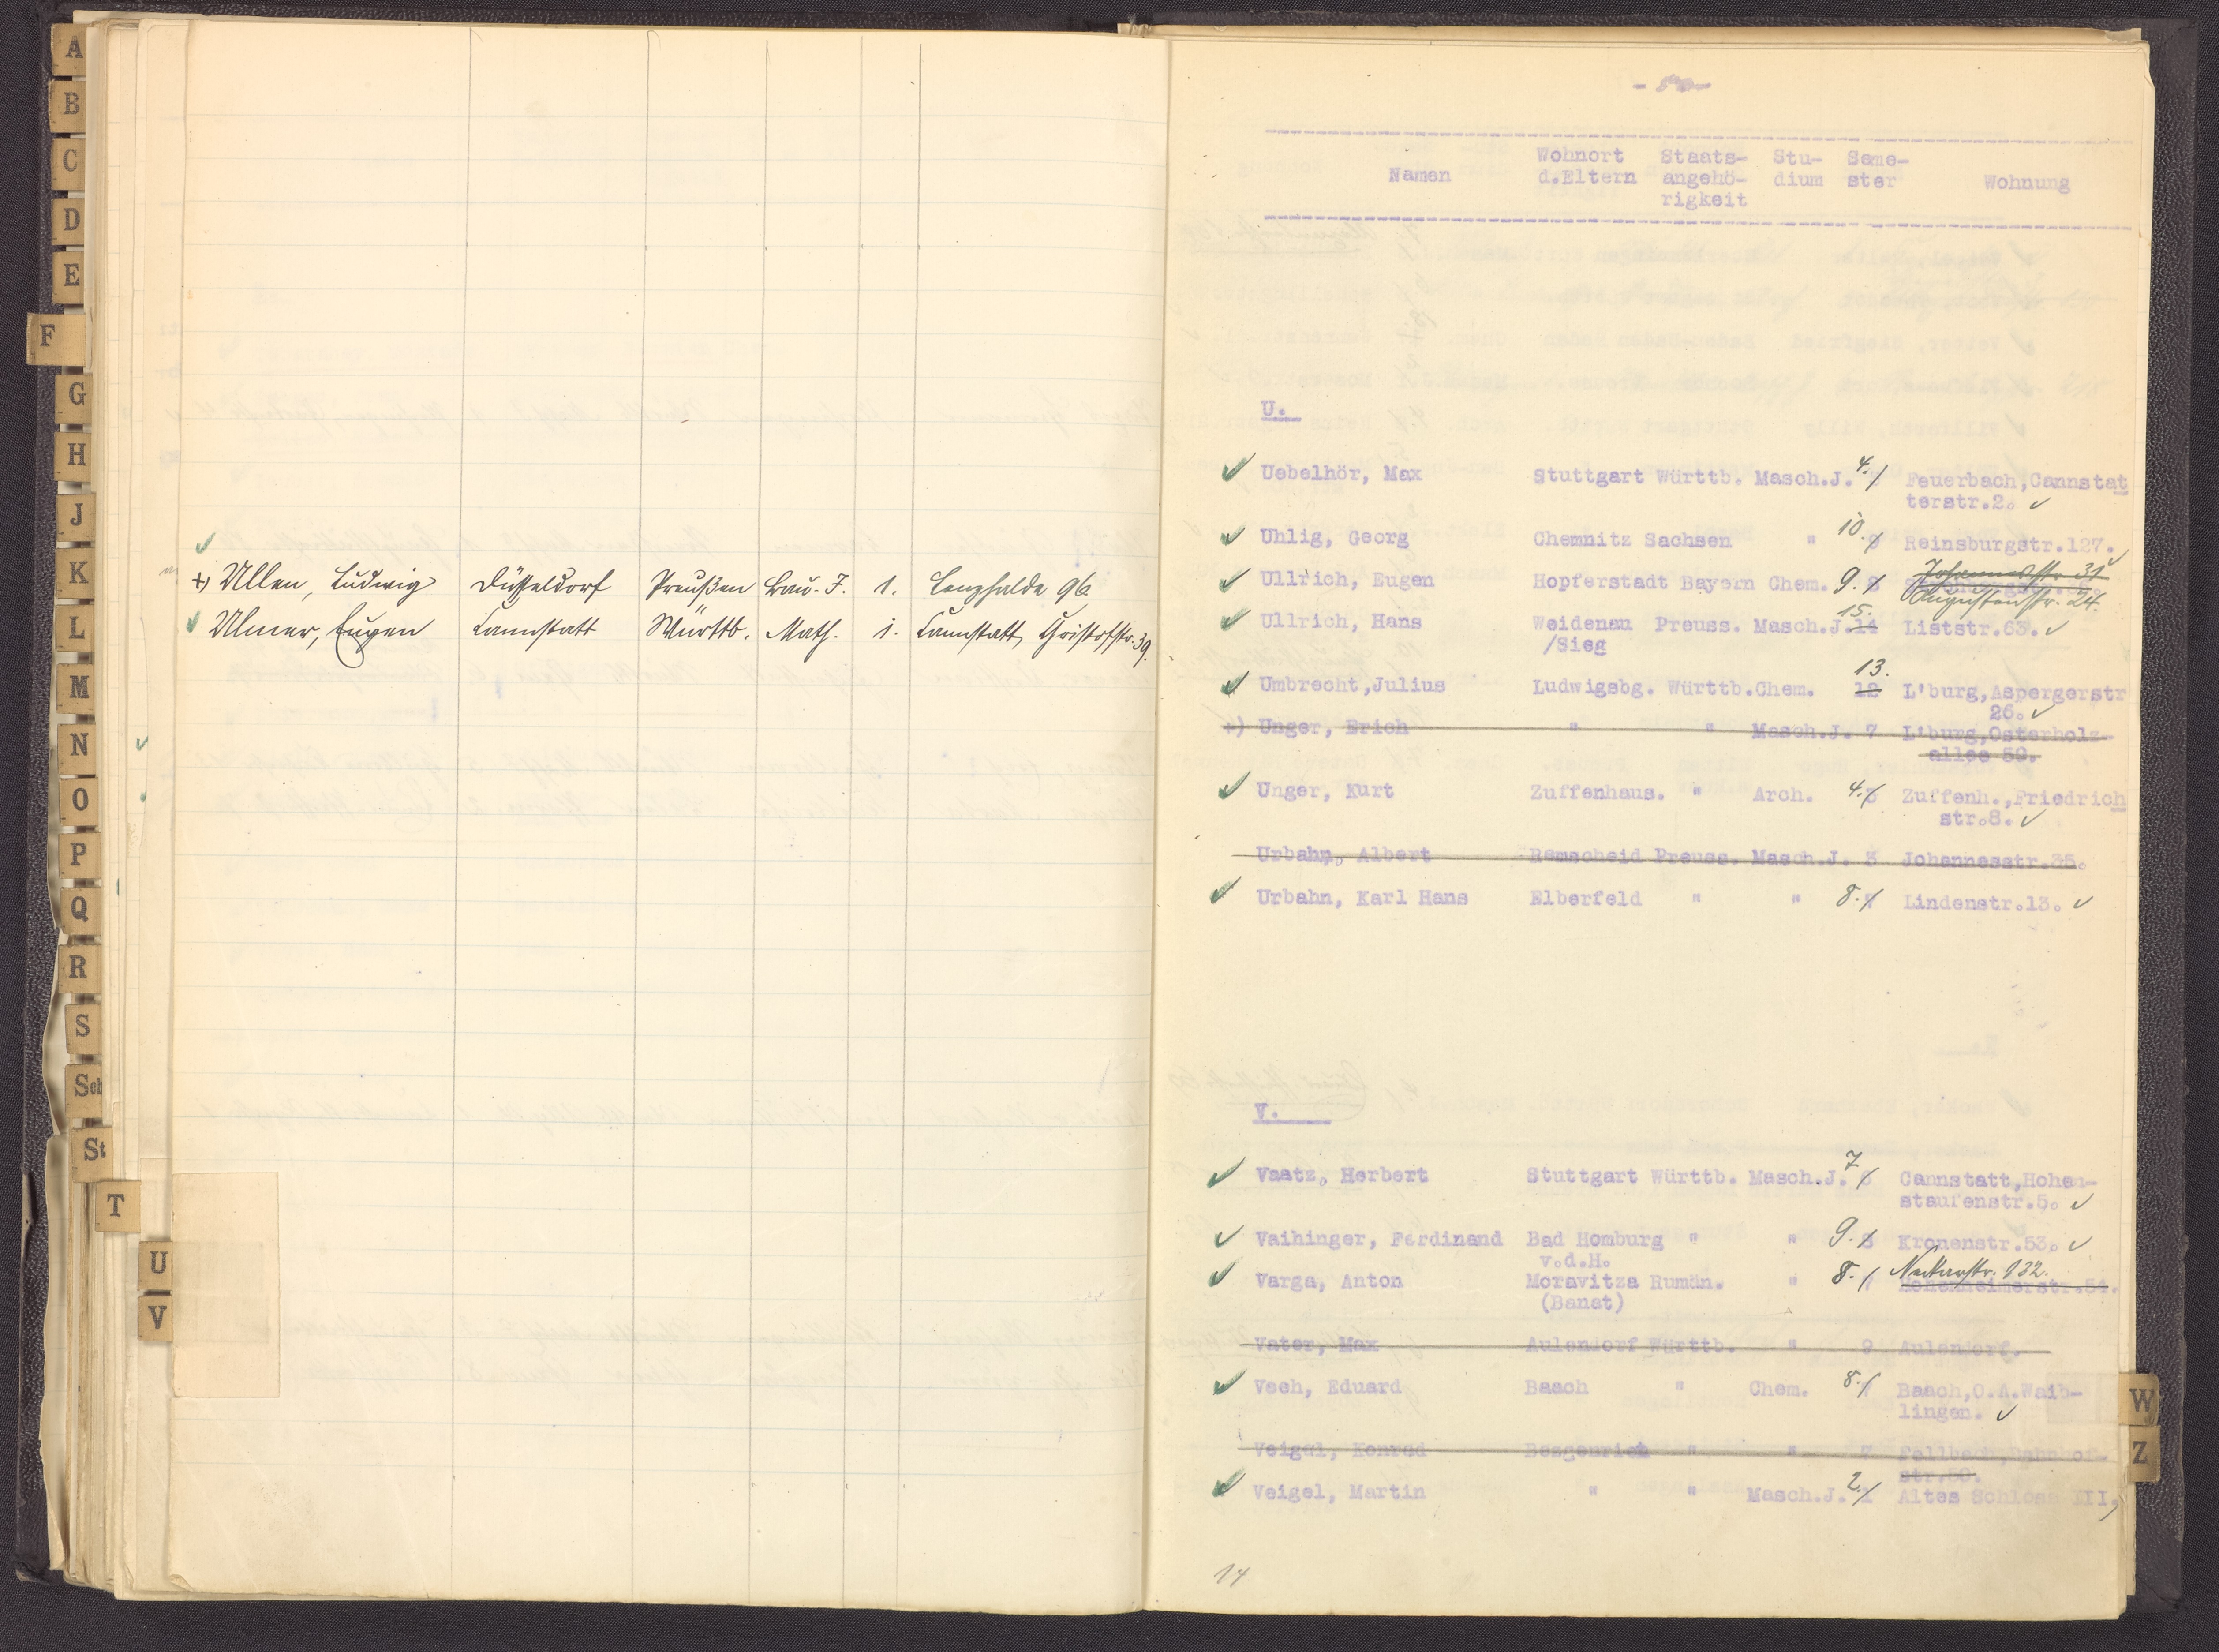 A
B
C
D
E
F
G
H
J
K
L
M
N
O
P
Q
R
S
Sch
St
T
U
V
+) Ullen, Ludwig Düsseldorf Preußen Bau-J. 1. Lenzhalde 96
Ulmer, Eugen Cannstatt Württb. Math. 1. Cannstatt, Christofstr. 39.
Namen Wohnort d.Eltern Staats-angehö-rigkeit Stu-dium Seme-ster Wohnung
U.
Uebelhör, Max Stuttgart Württb. Masch.J. 4. Feuerbach,Cannstat
terstr.2.
Uhlig, Georg Chemnitz Sachsen " 10. Reinsburgstr.127.
Johannesstr. 31
Ullrich, Eugen Hopferstadt Bayern Chem. 9. 8
Augustenstr. 24.
Ullrich, Hans Weidenau Preuss. Masch.J. 14 15. Liststr.63.
/Sieg
Umbrecht,Julius Ludwigsbg. Württb.Chem. 12 13. L'burg,Aspergerstr
26.
+) Unger, Erich " " Masch.J. 7 L'burg,Osterholz-
allee 59.
Unger, Kurt Zuffenhaus. " Arch. 4. 3 Zuffenh.,Friedrich
str.8.
Urbahn, Albert Remscheid Preuss. Masch.J. 3 Johannesstr.35.
Urbahn, Karl Hans Elberfeld " " 8. 7 Lindenstr.13.
V.
Vaatz, Herbert Stuttgart Württb. Masch.J. 7 6 Cannstatt,Hohen-
staufenstr.5.
Vaihinger, Ferdinand Bad Homburg " " 9. 8 Kronenstr.53.
v.d.H.
Neckarstr. 132.
Varga, Anton Moravitza Rumän. " 8. Hohenheimerstr.54.
(Banat)
Vater, Max Aulendorf Württb. " 9 Aulendorf.
Veeh, Eduard Baach " Chem. 8. Baach,O.A.Waib-
lingen.
Veigel, Konrad Bezgenriet " " 7 Fellbach,Bahnhof-
Veigel, Martin " " Masch.J. 2. 1 Altes Schloss III.
14
W
Z